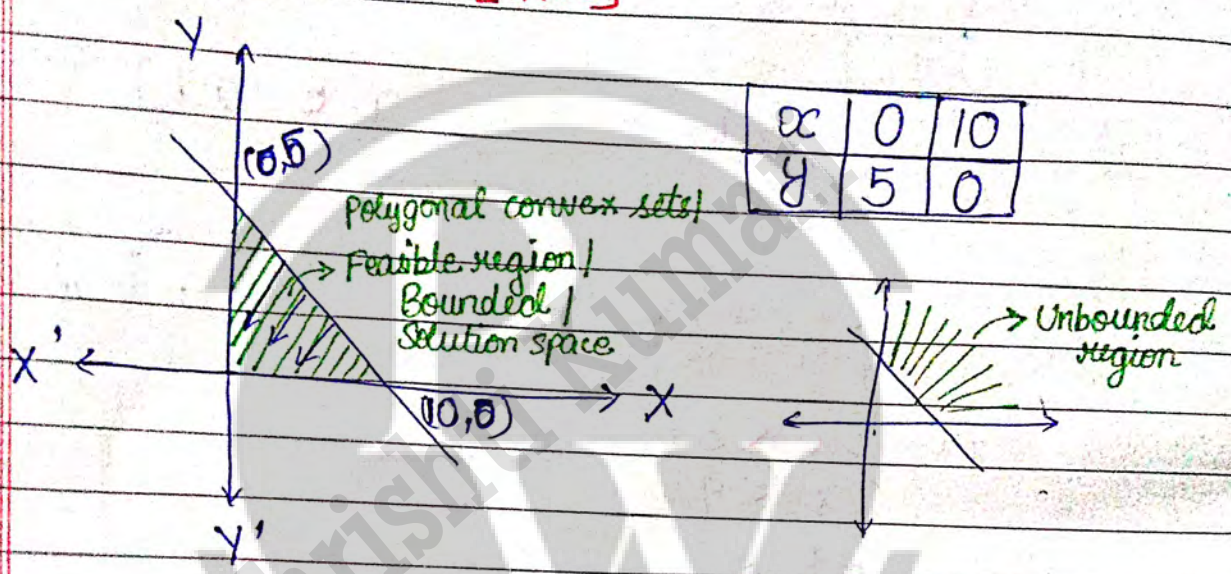 Y
x 0 10
y 5 0
(0,5)
polygonal convex sets/
→ Feasible region/
Bounded/
Solution space
→ Unbounded
region
X'
X
(10,0)
Y'
Shrishti Kumari